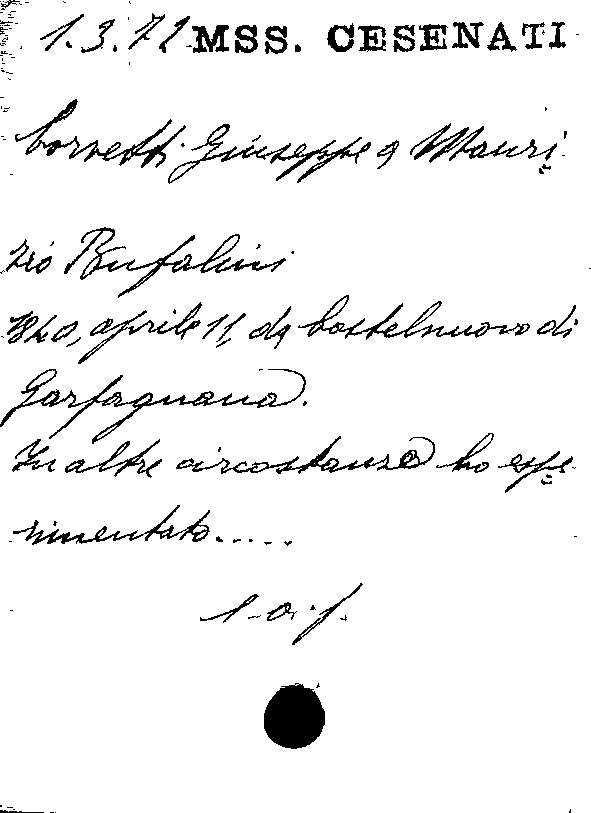 1.3.72 MSS. CESENATI
Corvetti Giuseppe a Mauri
zio Bufalini
1840, aprile 11, da Castelnuovo di
Garfagnana.
In altre circostanze ho espe
rimentato.....
l.a.f.